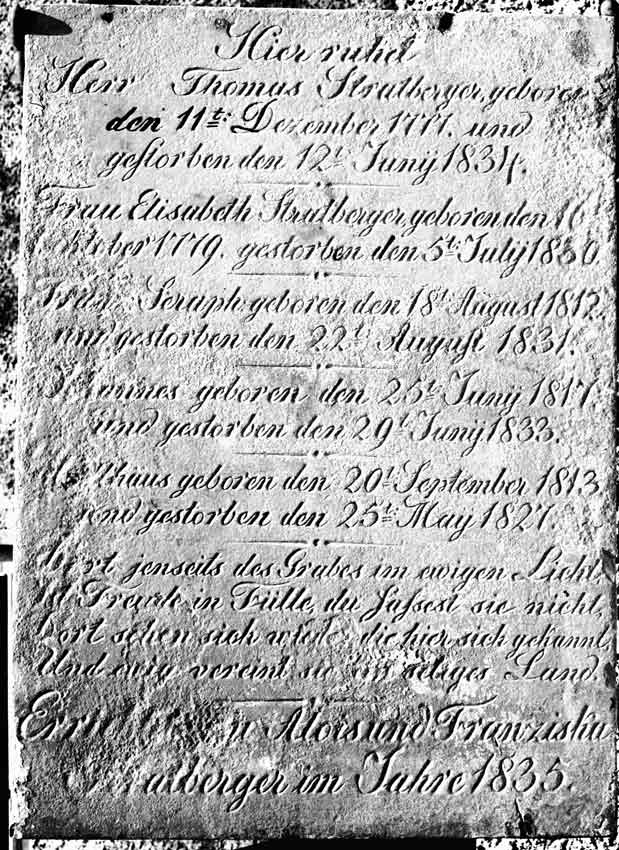 Hier ruhet
Herr Thomas Stratberger, geboren
den 11t: Dezember 1777. und
gestorben den 12t Junÿ 1834.
Frau Elisabeth Stratberger geboren den 16
Oktober 1779. gestorben den 5t: Julÿ 1830.
Franz Seraph geboren den 18t August 1812.
und gestorben den 22t August 1831.
geboren den 25t Junÿ 1817.
und gestorben den 29t Junÿ 1833.
geboren den 20t September 1813.
und gestorben den 25t: May 1827.
Dort jenseits des Grabes im ewigen Licht,
Ist Freude in Fülle, du fassest sie nicht,
Dort sehen sich wieder die hier sich gekannt,
Und ewig vereint sie ein seliges Land.
Alois und Franziska
im Jahre 1835.